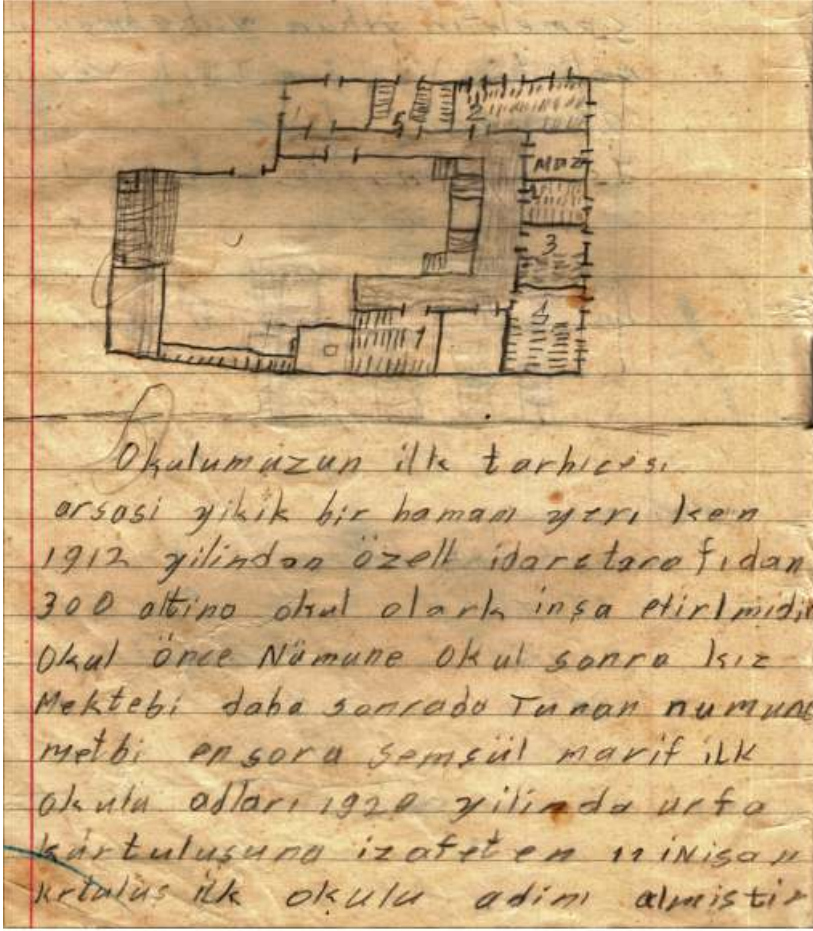 5
2
MDZ
3
4
1
Okulumuzun ilk tarhıcesi
arsasi yikik bir hamam yeri ken
1912 yilindan özell idaretarafıdan
300 altina okul olark inşa etirlmidir
Okul önce Nümune okul sonra kız
Mektebi daha sonrada Turan numune
metbi en sora Şemsül marif ilk
okulu adları 1920 yilinda urfa
kurtuluşuna izafeten 11 iNisan
krtuluş ilk okulu adini almiştir